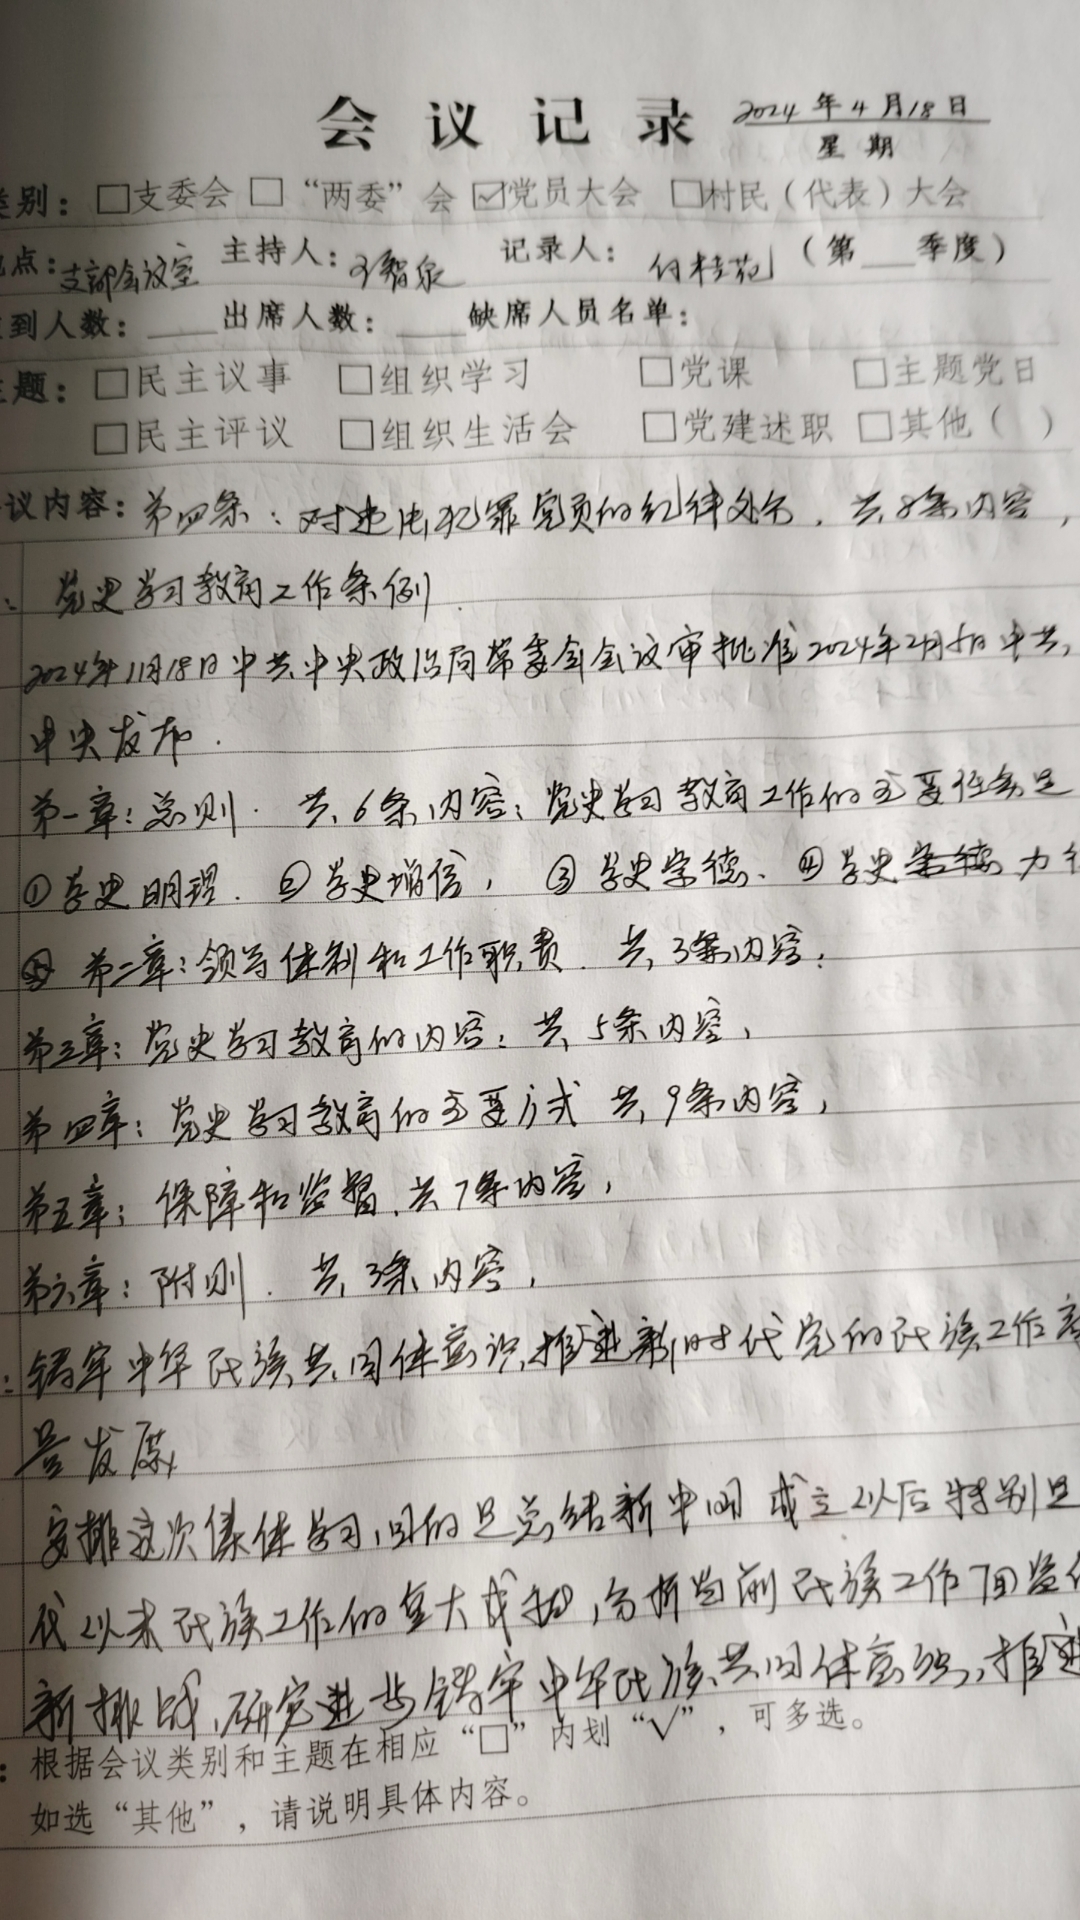 会议记录 2024年4月18日
星期
类别：□支委会 □“两委”会 ☑党员大会 □村民（代表）大会
点：支部会议室 主持人： 记录人： （第 季度）
到人数： 出席人数： 缺席人员名单：
题：□民主议事 □组织学习 □党课 □主题党日
□民主评议 □组织生活会 □党建述职 □其他（ ）
议内容：第四条：对违法犯罪党员的纪律处分，共8条内容，
党史学习教育工作条例.
2024年11月18日中共中央政治局常委会会议审批准2024年2月5日中共
中央发布.
第一章：总则. 共6条内容；党史学习教育工作的主要任务是
①学史明理. ②学史增信， ③学史崇德、④学史力行
第二章：领导体制和工作职责. 共3条内容；
第三章：党史学习教育的内容：共5条内容，
第四章：党史学习教育的主要方式 共9条内容，
第五章：保障和监督.共7条内容，
第六章：附则. 共3条内容，
铸牢中华民族共同体意识，推进新时代党的民族工作高
量发展
安排这次集体学习，目的是总结新中国成立以后特别是
代以来民族工作的重大成就，分析当前民族工作面临
新挑战，研究进步铸牢中华民族共同体意识，推进
：根据会议类别和主题在相应“□”内划“√”，可多选。
如选“其他”，请说明具体内容。